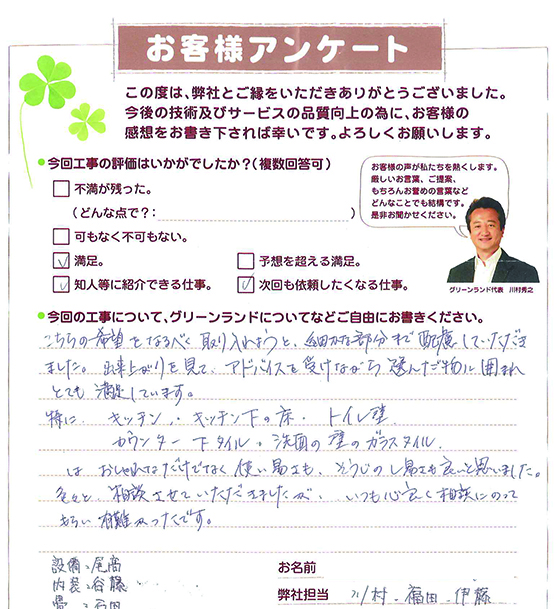 お客様アンケート
この度は、弊社とご縁をいただきありがとうございました。
今後の技術及びサービスの品質向上の為に、お客様の
感想をお書き下されば幸いです。よろしくお願いします。
今回工事の評価はいかがでしたか?(複数回答可)
不満が残った。
(どんな点で?: )
可もなく不可もない。
満足。
予想を超える満足。
知人等に紹介できる仕事。
次回も依頼したくなる仕事。
お客様の声が私たちを熱くします。
厳しいお言葉、ご提案、
もちろんお誉めの言葉など
どんなことでも結構です。
是非お聞かせください。
グリーンランド代表 川村秀之
今回の工事について、グリーンランドについてなどご自由にお書きください。
こちらの希望をなるべく取り入れようと、細かな部分まで配慮していただき
ました。出来上がりを見て、アドバイスを受けながら選んだ物に囲まれ
とても満足しています。
特に キッチン・キッチン下の床・トイレ壁
カウンター下タイル・洗面の壁のガラスタイル
は おしゃれなだけでなく使い易さも、そうじのし易さも良いと思いました。
色々と相談させていただきましたが、いつも心良く相談にのって
もらい有難かったです。
設備:尾高
内装:谷藤
畳:石田
お名前
弊社担当 川村・福田・伊藤